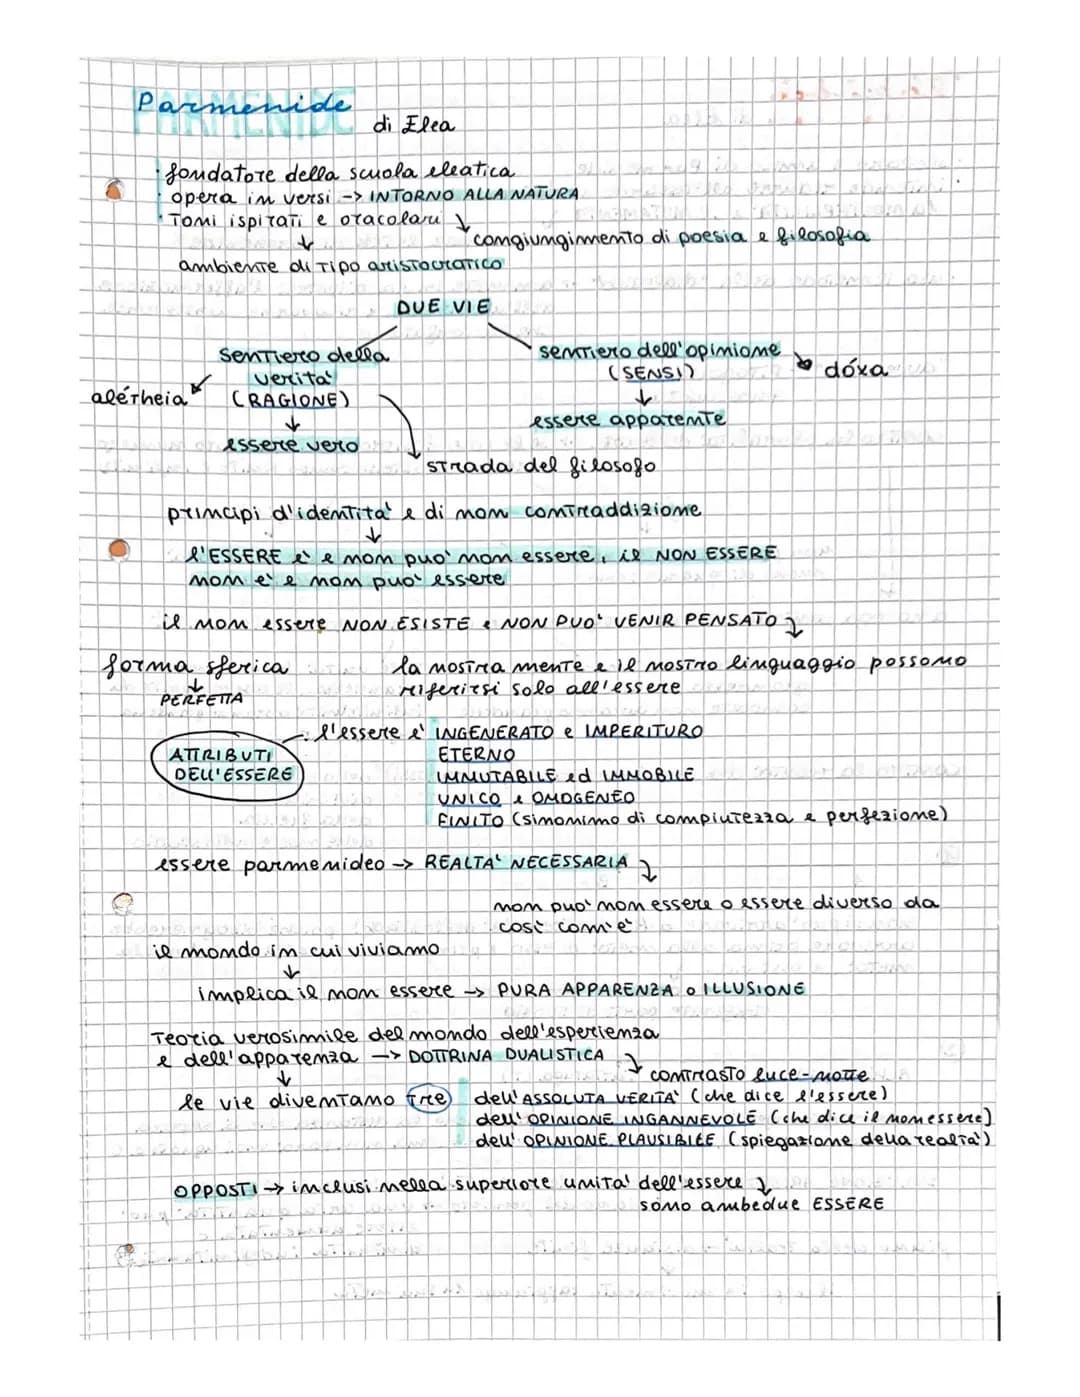 Parmenide
PARMENIDE
di Elea
· fondatore della scuola eleatica
· opera in versi -> INTORNO ALLA NATURA
· Toni ispirati e oracolari ↓
↓ congiungimento di poesia e filosofia
ambiente di tipo aristocratico
DUE VIE
sentiero della
verità
(RAGIONE)
alétheia
↓
essere vero
strada del filosofo
sentiero dell'opinione
(SENSI)
dóxa
↓
essere apparente
principi d'identità e di non contraddizione
↓
l'ESSERE è e non può non essere, il NON ESSERE
non è e non può essere
il non essere NON ESISTE e NON PUO' VENIR PENSATO
la nostra mente e il nostro linguaggio possono
riferirsi solo all'essere
forma sferica
↓
PERFETTA
ATTRIBUTI
DELL'ESSERE
l'essere è INGENERATO e IMPERITURO
ETERNO
IMMUTABILE ed IMMOBILE
UNICO e OMOGENEO
FINITO (sinonimo di compiutezza e perfezione)
essere parmenideo -> REALTA' NECESSARIA
non può non essere o essere diverso da
così com'è
il mondo in cui viviamo
↓
implica il non essere -> PURA APPARENZA o ILLUSIONE
Teoria verosimile del mondo dell'esperienza
e dell'apparenza -> DOTTRINA DUALISTICA
contrasto luce-notte
↓
le vie diventano tre
dell'ASSOLUTA VERITA' (che dice l'essere)
dell'OPINIONE INGANNEVOLE (che dice il non essere)
dell'OPINIONE PLAUSIBILE (spiegazione della realtà)
OPPOSTI -> inclusi nella superiore unità dell'essere
sono ambedue ESSERE